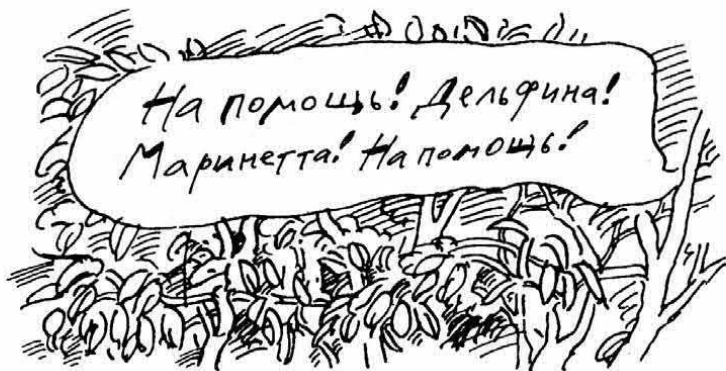 На помощь! Дельфина!
Маринетта! На помощь!